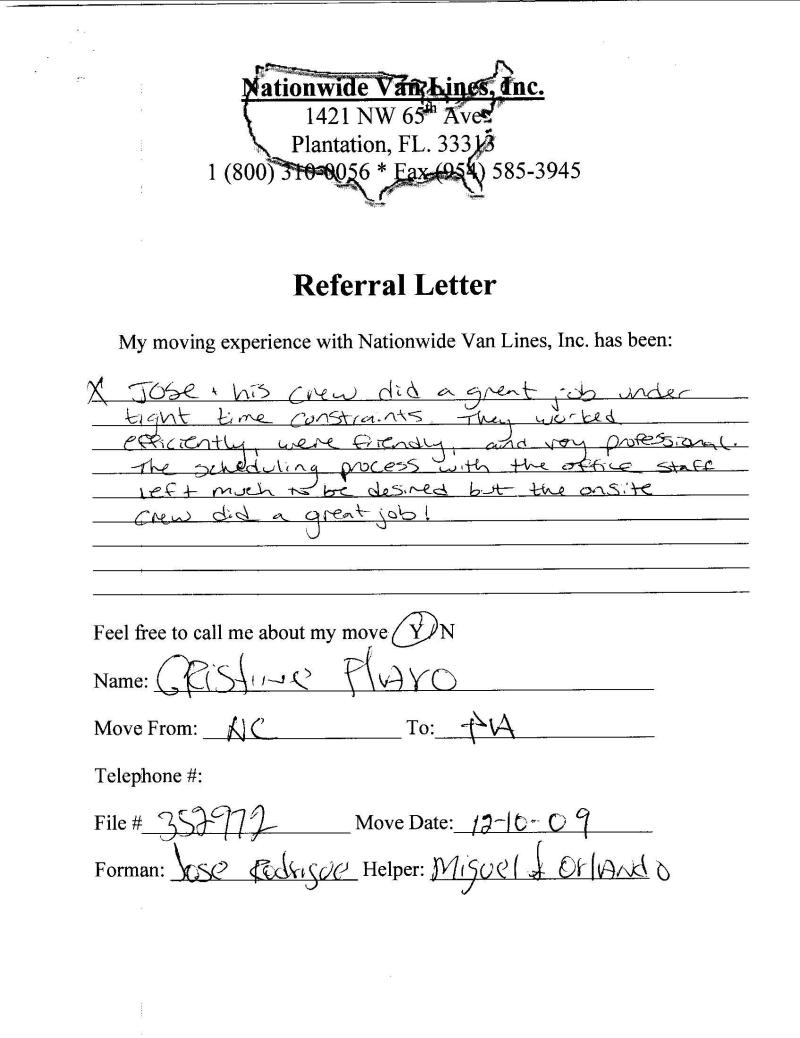 Nationwide Van Lines, Inc.
1421 NW 65th Ave
Plantation, FL. 33313
1 (800) 310-0056 * Fax (954) 585-3945
Referral Letter
My moving experience with Nationwide Van Lines, Inc. has been:
X Jose + his crew did a great job under
tight time constraints. They worked
efficiently, were friendly, and very professional.
The scheduling process with the office staff
left much to be desired but the onsite
crew did a great job!
Feel free to call me about my move Y/N
Name: CRistine
Move From: NC To: PA
Telephone #:
File # 352972 Move Date: 12-10-09
Forman: Jose Rodrigue Helper: Miguel & Orlando